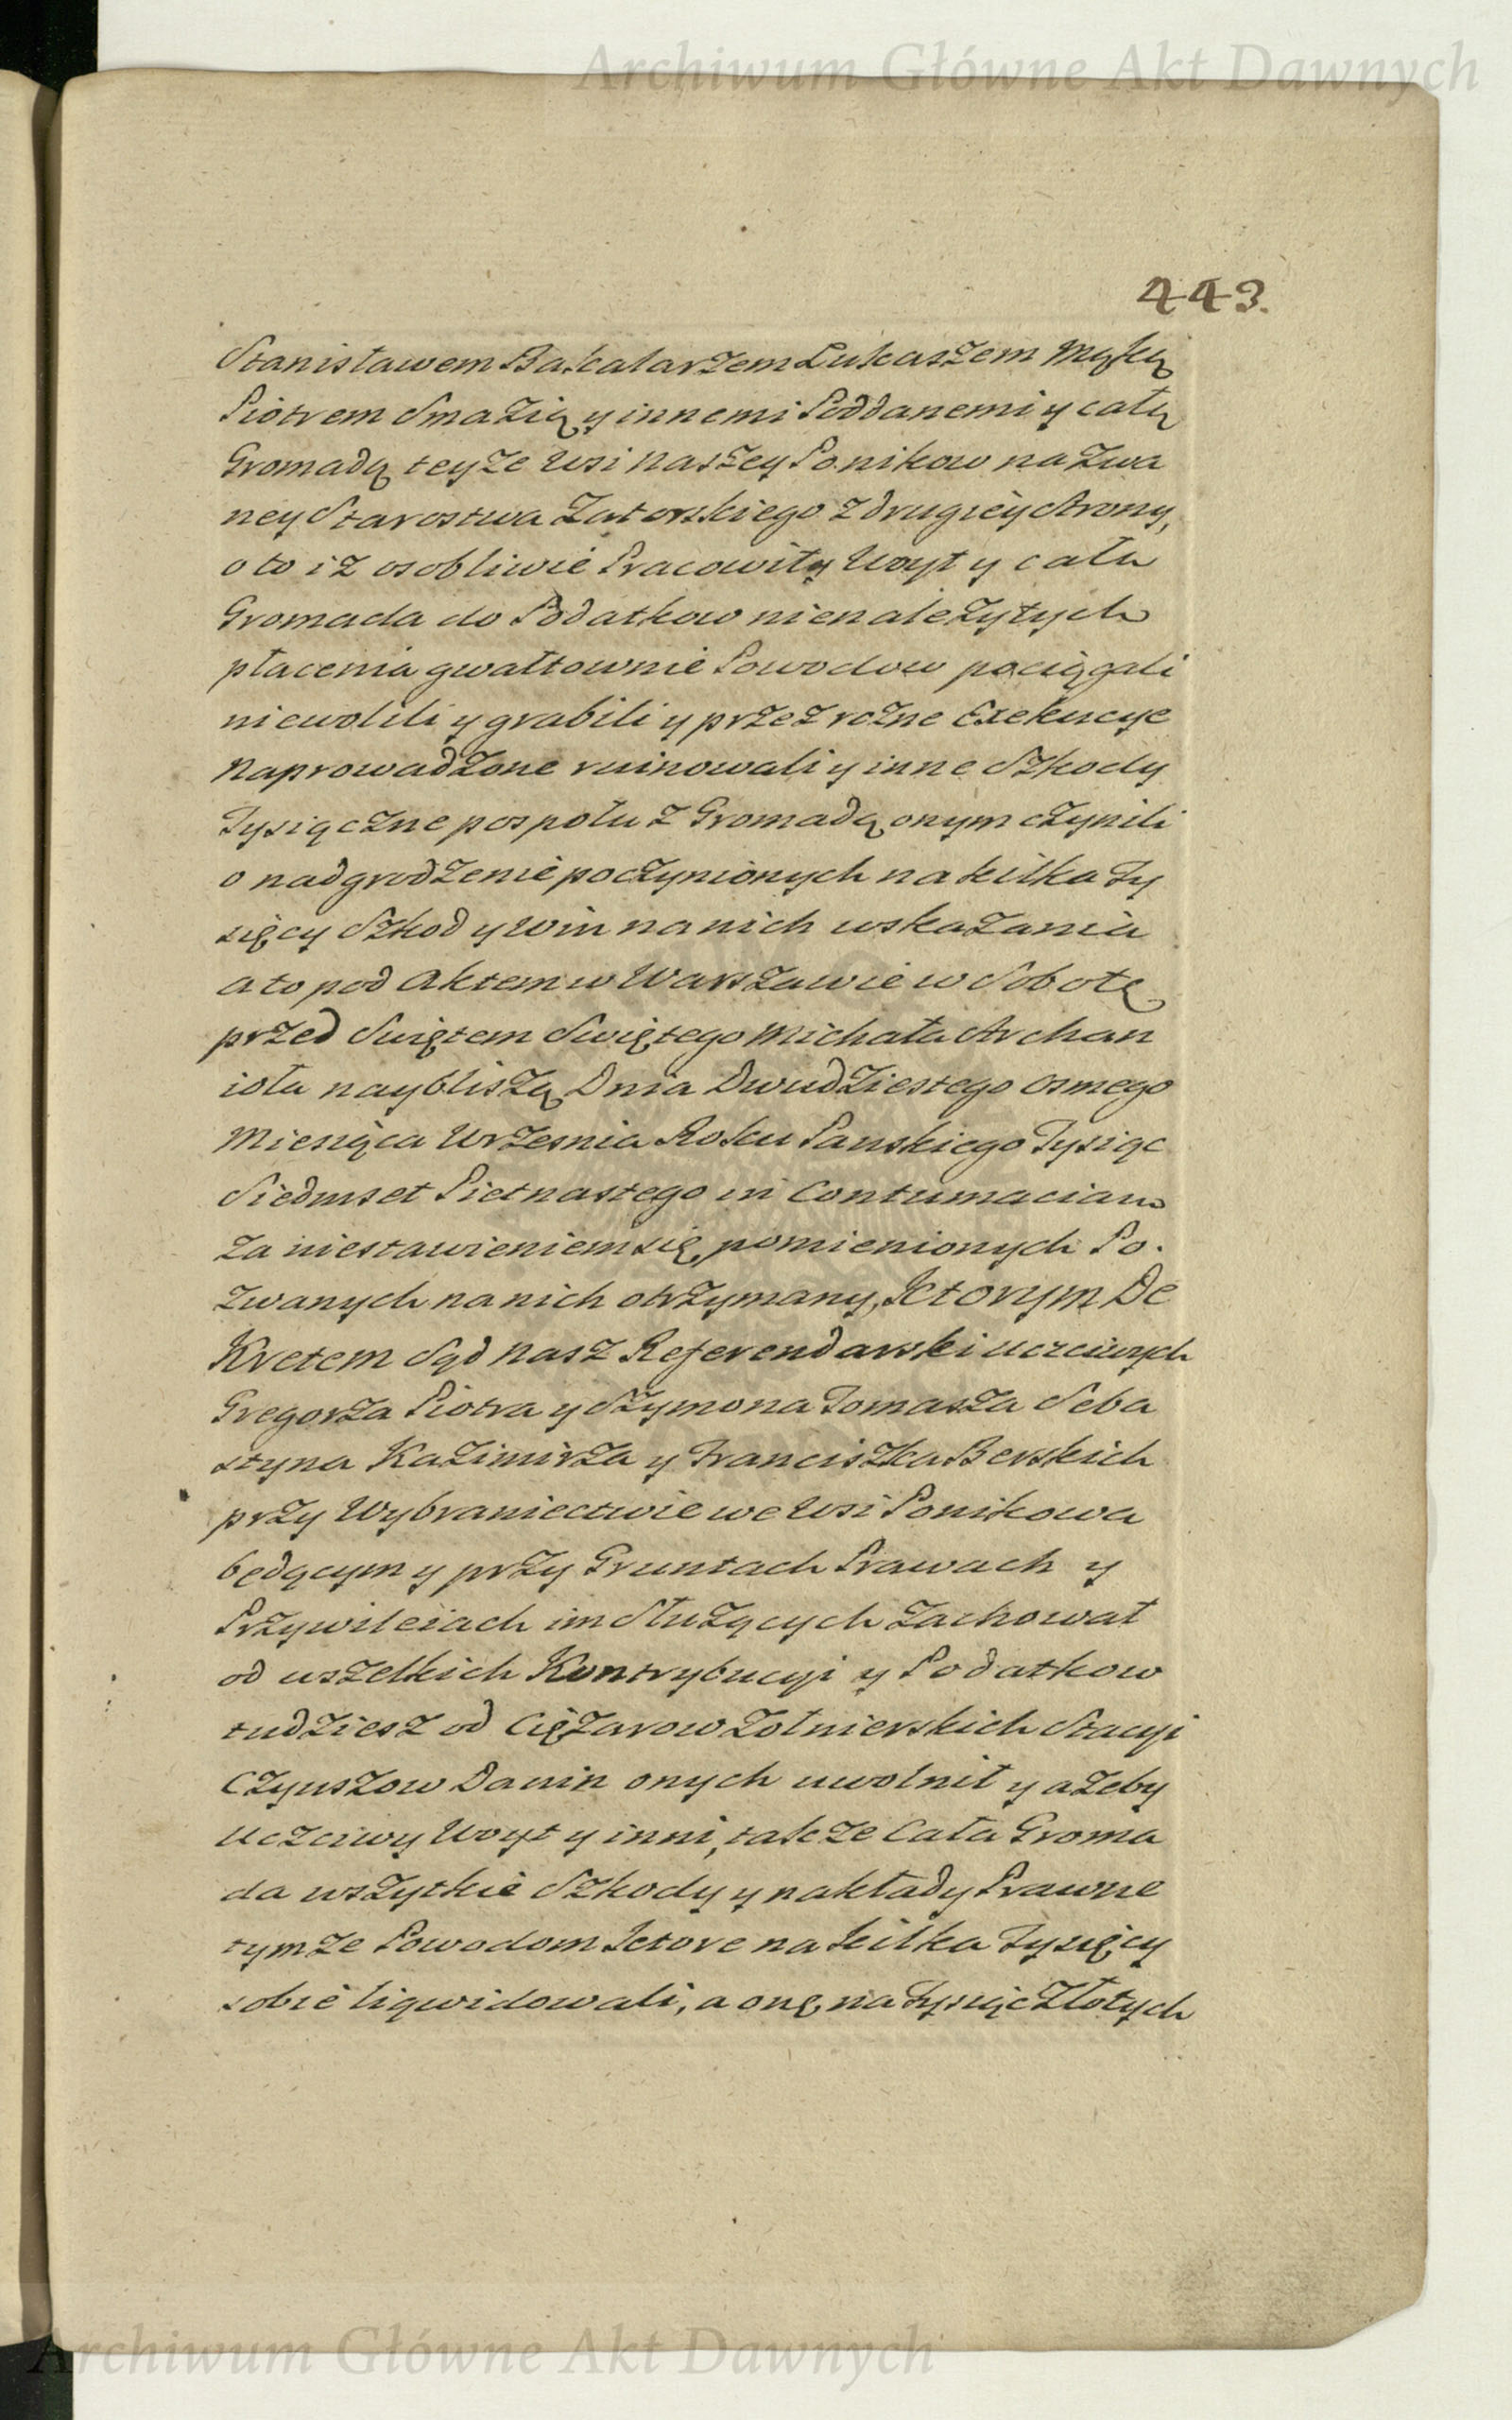 Archiwum Główne Akt Dawnych
443.
Stanisławem Bakalarzem Łukaszem Myłką
Piotrem Smazią y innemi Poddanemi y całą
Gromadą teyze Wsi Naszey Ponikow nazwa
ney Starostwa Zatorskiego z drugiey strony,
o to iz osobliwie Pracowity Woyt y cała
Gromada do Podatkow nienalezytych
płacenia gwałtownie Powodow pociągali
niewolili y grabili y przez rożne Exekucye
Naprowadzone ruinowali y inne Szkody
Tysiączne pospołu z Gromadą onym czynili
o nadgrodzenie poczynionych na kilka Ty
sięcy Szkod y Win na nich wskazania
a to pod Aktem w Warszawie w Sobotę
przed Swiętem Swiętego Michała Archan
ioła nayblisżą Dnia Dwudziestego osmego
Miesiąca Wrzesnia Roku Panskiego Tysiąc
Siedmset Pietnastego in Contumaciam
za niestawieniem się pomienionych Po.
zwanych na nich otrzymany, Ktorym De
Kretem Sąd Nasz Referendarski uczciwych
Gregorza Piotra y Szymona Tomasza Seba
styna Kazimirza y Franciszka Berskich
przy Wybraniectwie we Wsi Ponikowa
będącym y przy Gruntach Prawach y
Przywileiach im Służących zachował
od wszelkich Kontrybucyi y Podatkow
tudziesz od Ciężarow Zołnierskich Stacyi
Czynszow Danin onych uwolnił y azeby
Uczciwy Woyt y inni, takze Cała Groma
da wszytkie Szkody y nakłady Prawne
tymze Powodom ktore na kilka Tysięcy
sobie liqwidowali, a one na Tysiąc Złotych
Archiwum Główne Akt Dawnych